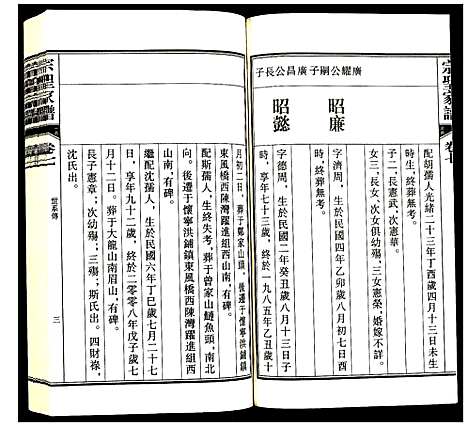 宗聖家譜
卷十
配胡孺人光緒二十三年丁酉歲四月十三日未生
時生，終葬無考。
子二：長憲武、次憲華。
女三：長女、次女俱幼殤，三女憲榮，婚嫁不詳。
昭廉
字濟周，生於民國四年乙卯歲八月初七日酉
時，終葬無考。
廣耀公嗣子廣昌公長子
昭懿
字德周，生於民國二年癸丑歲八月十三日子
時，享年七十三歲，終於一九八五年乙丑歲十
月初二日，葬于鄭家山頭，後遷于懷寧洪鋪鎮
東風橋西陳灣躍進組西山南，有碑。
配斯孺人，生終失考，葬于曾家山鰱魚頭，南北
向。後遷于懷寧洪鋪鎮東風橋西陳灣躍進組西
山南，有碑。
繼配沈孺人，生於民國六年丁巳歲七月二十七
日，享年九十二歲，終於二零零八年戊子歲七
月十二日。葬于大龍山南眉山，有碑。
長子憲章；次幼殤；三殤；斯氏出。四財祿，
沈氏出。
宗聖家譜
世系傳
三